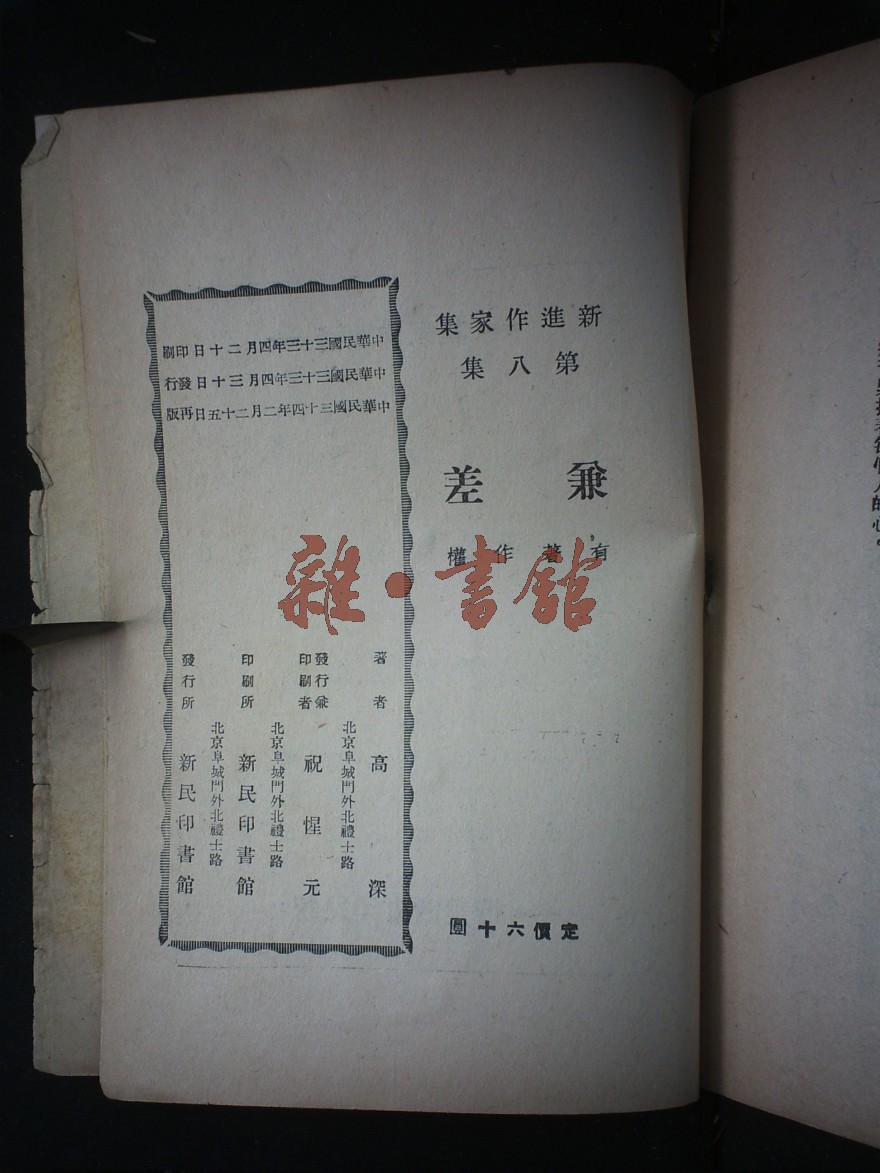 新進作家集
第八集
兼差
有著作權
定價六十圓
中華民國三十三年四月二十日印刷
中華民國三十三年四月三十日發行
中華民國三十四年二月二十五日再版
著者 高深
北京阜城門外北禮士路
發行兼印刷者 祝惺元
北京阜城門外北禮士路
印刷所 新民印書館
北京阜城門外北禮士路
發行所 新民印書館
雜·書館